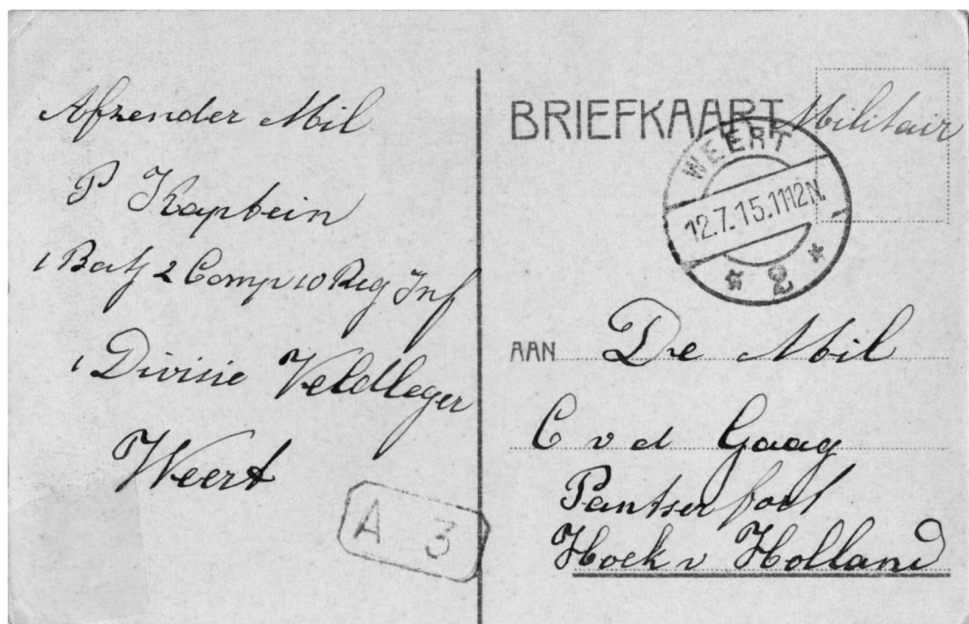 Afzender Mil
P Kapbein
1 Batj 2 Comp 10 Reg Inf
1 Divisie Veldleger
Weert
A 3
BRIEFKAART
Militair
WEERT
12.7.15.1112N.
2
AAN De Mil
C v d Gaag
Pantserfort
Hoek v Holland